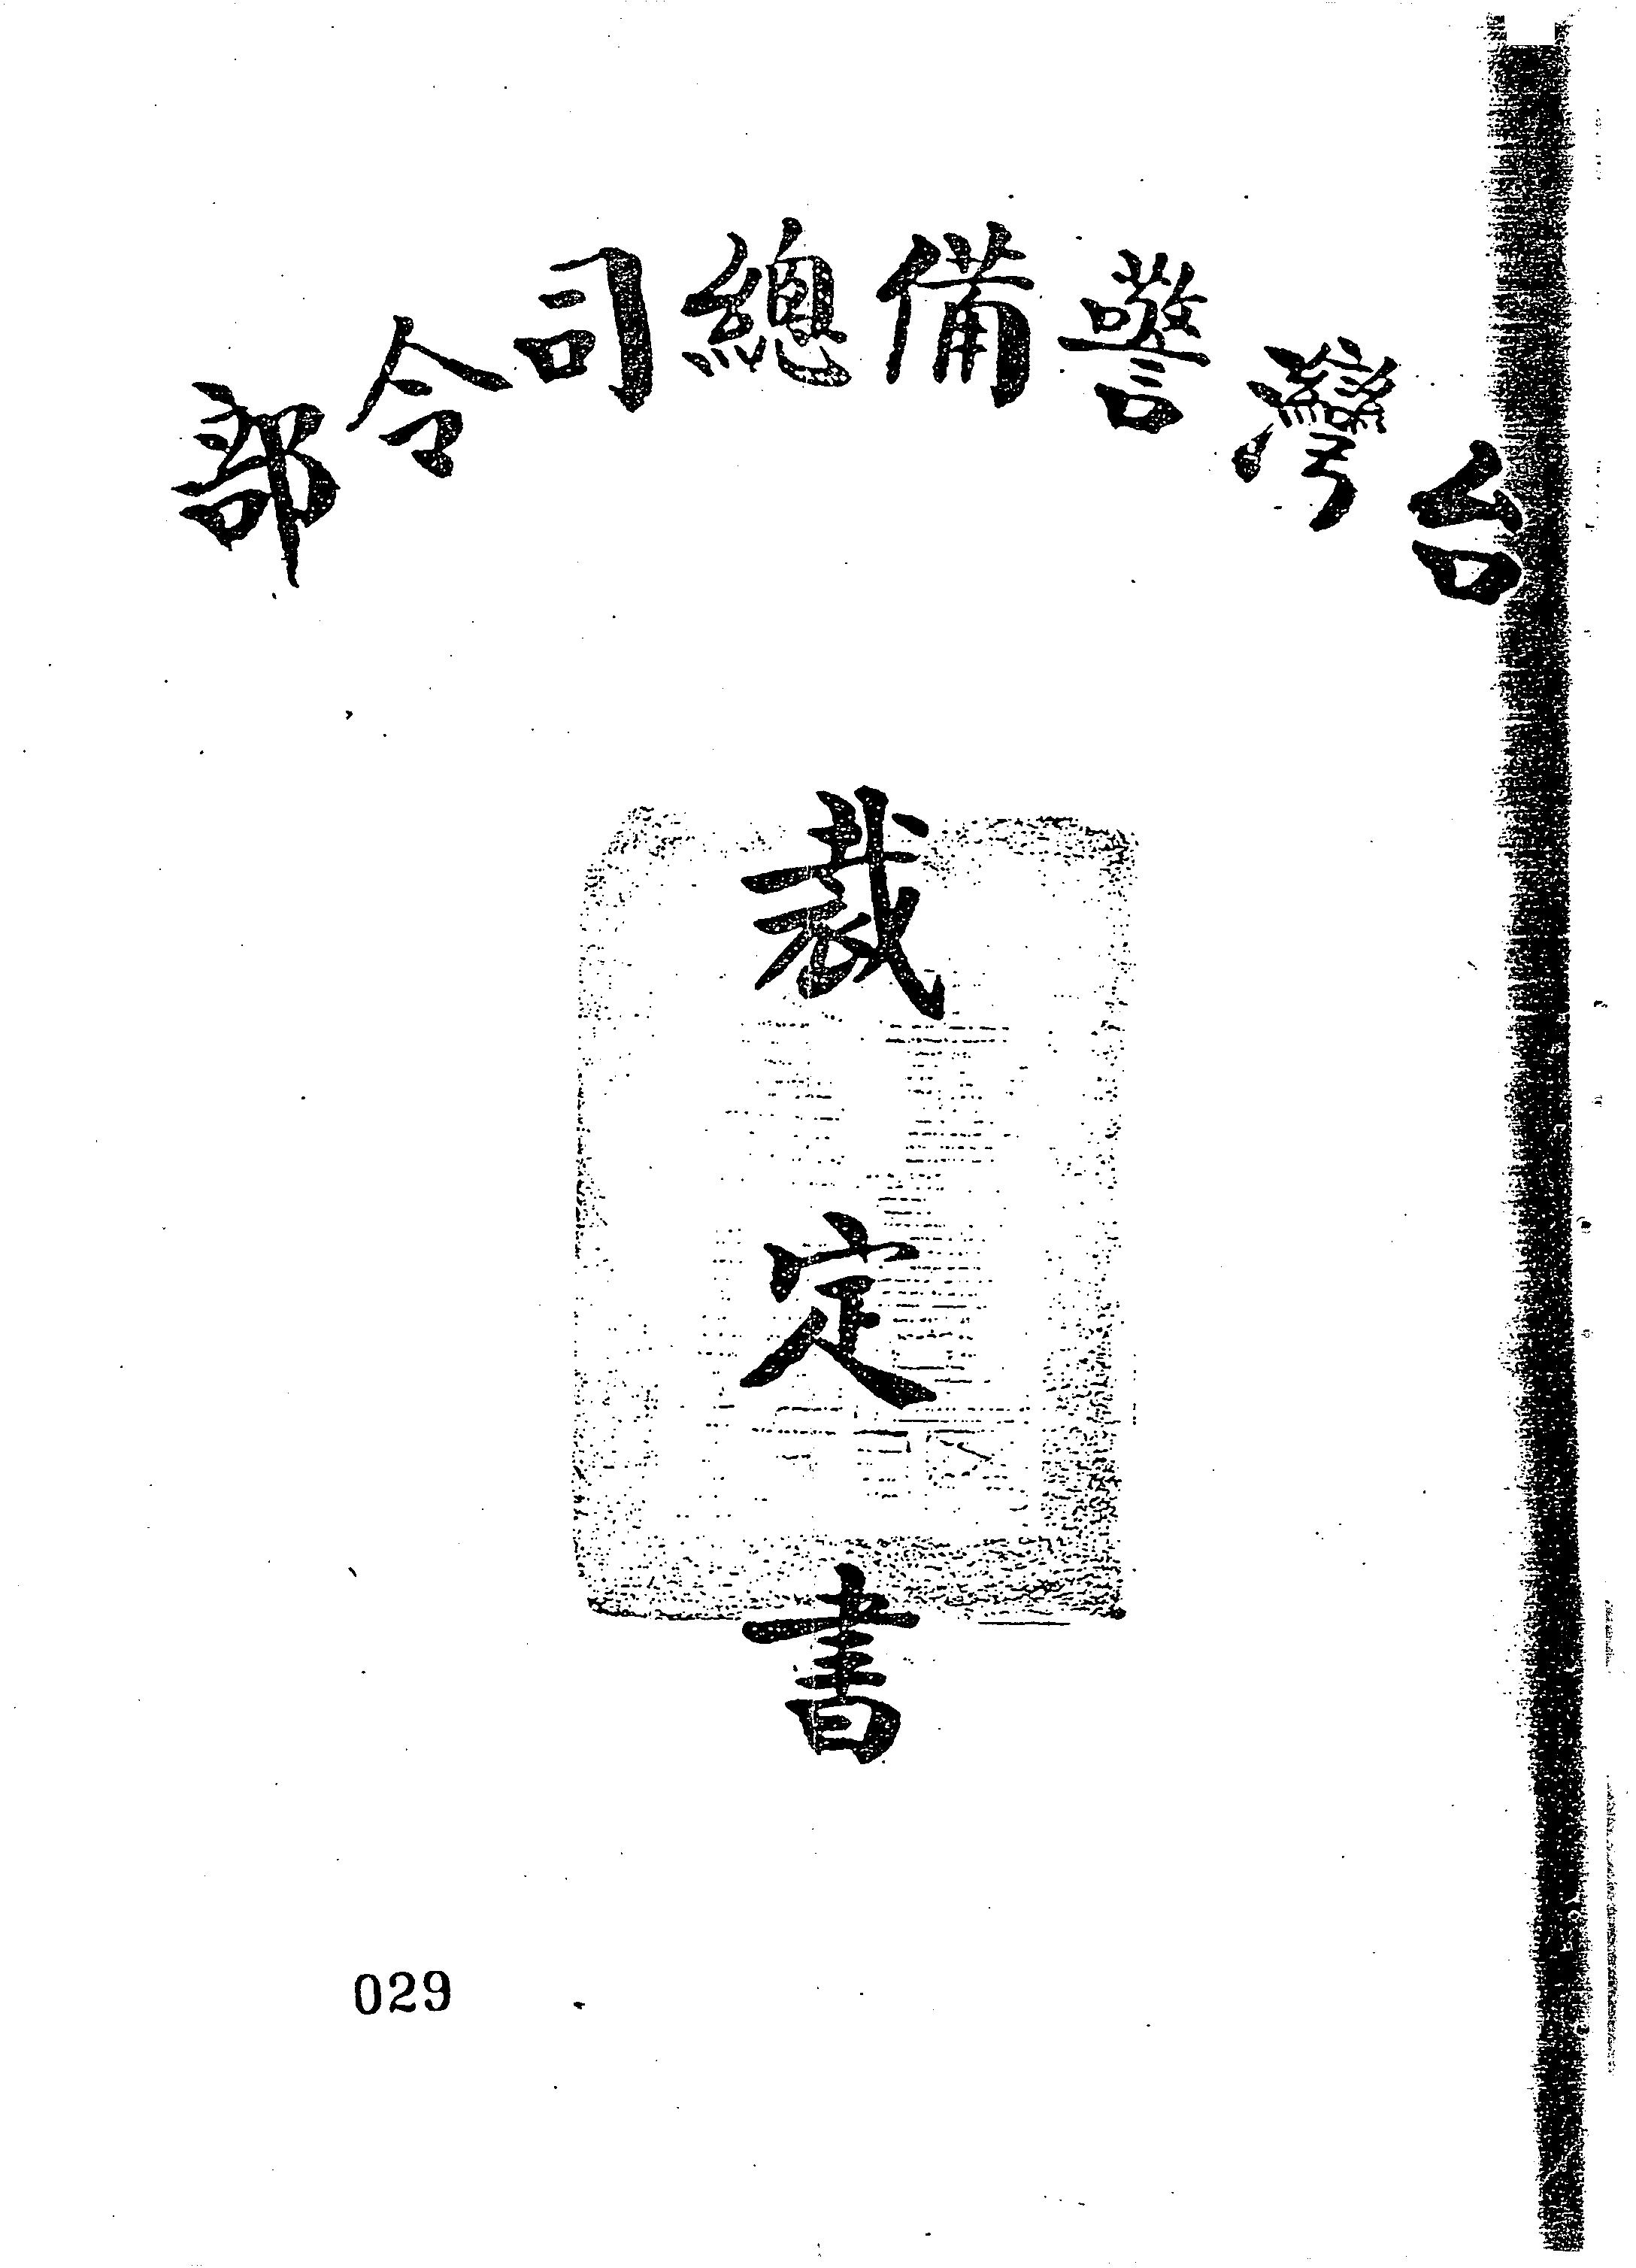 台灣警備總司令部
裁定書
029